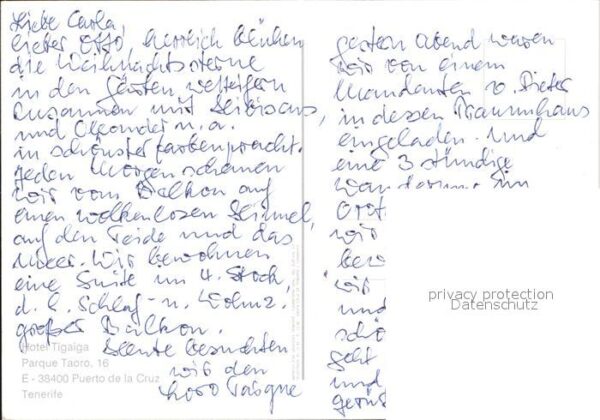 Liebe Carla,
lieber Otto, herrlich blühen
die Weihnachtssterne
in den Gärten, wetteifern
zusammen mit Hibiscus,
und Oleander u. a.
in schönster Farbenpracht.
Jeden Morgen schauen
wir vom Balkon auf
einen wolkenlosen Himmel,
auf den Teide und das
Meer. Wir bewohnen
eine Suite im 4. Stock,
d. h. Schlaf- u. Wohnz.
großer Balkon.
Heute besuchten
wir den
Loro Parque
Hotel Tigaiga
Parque Taoro, 16
E - 38400 Puerto de la Cruz
Tenerife
gestern Abend waren
wir von einem
Mandanten v. Dieter
in dessen Traumhaus
eingeladen. Und
eine 3 stündige
Wanderung im
wir
wir
und
schö
geht
und
privacy protection
Datenschutz